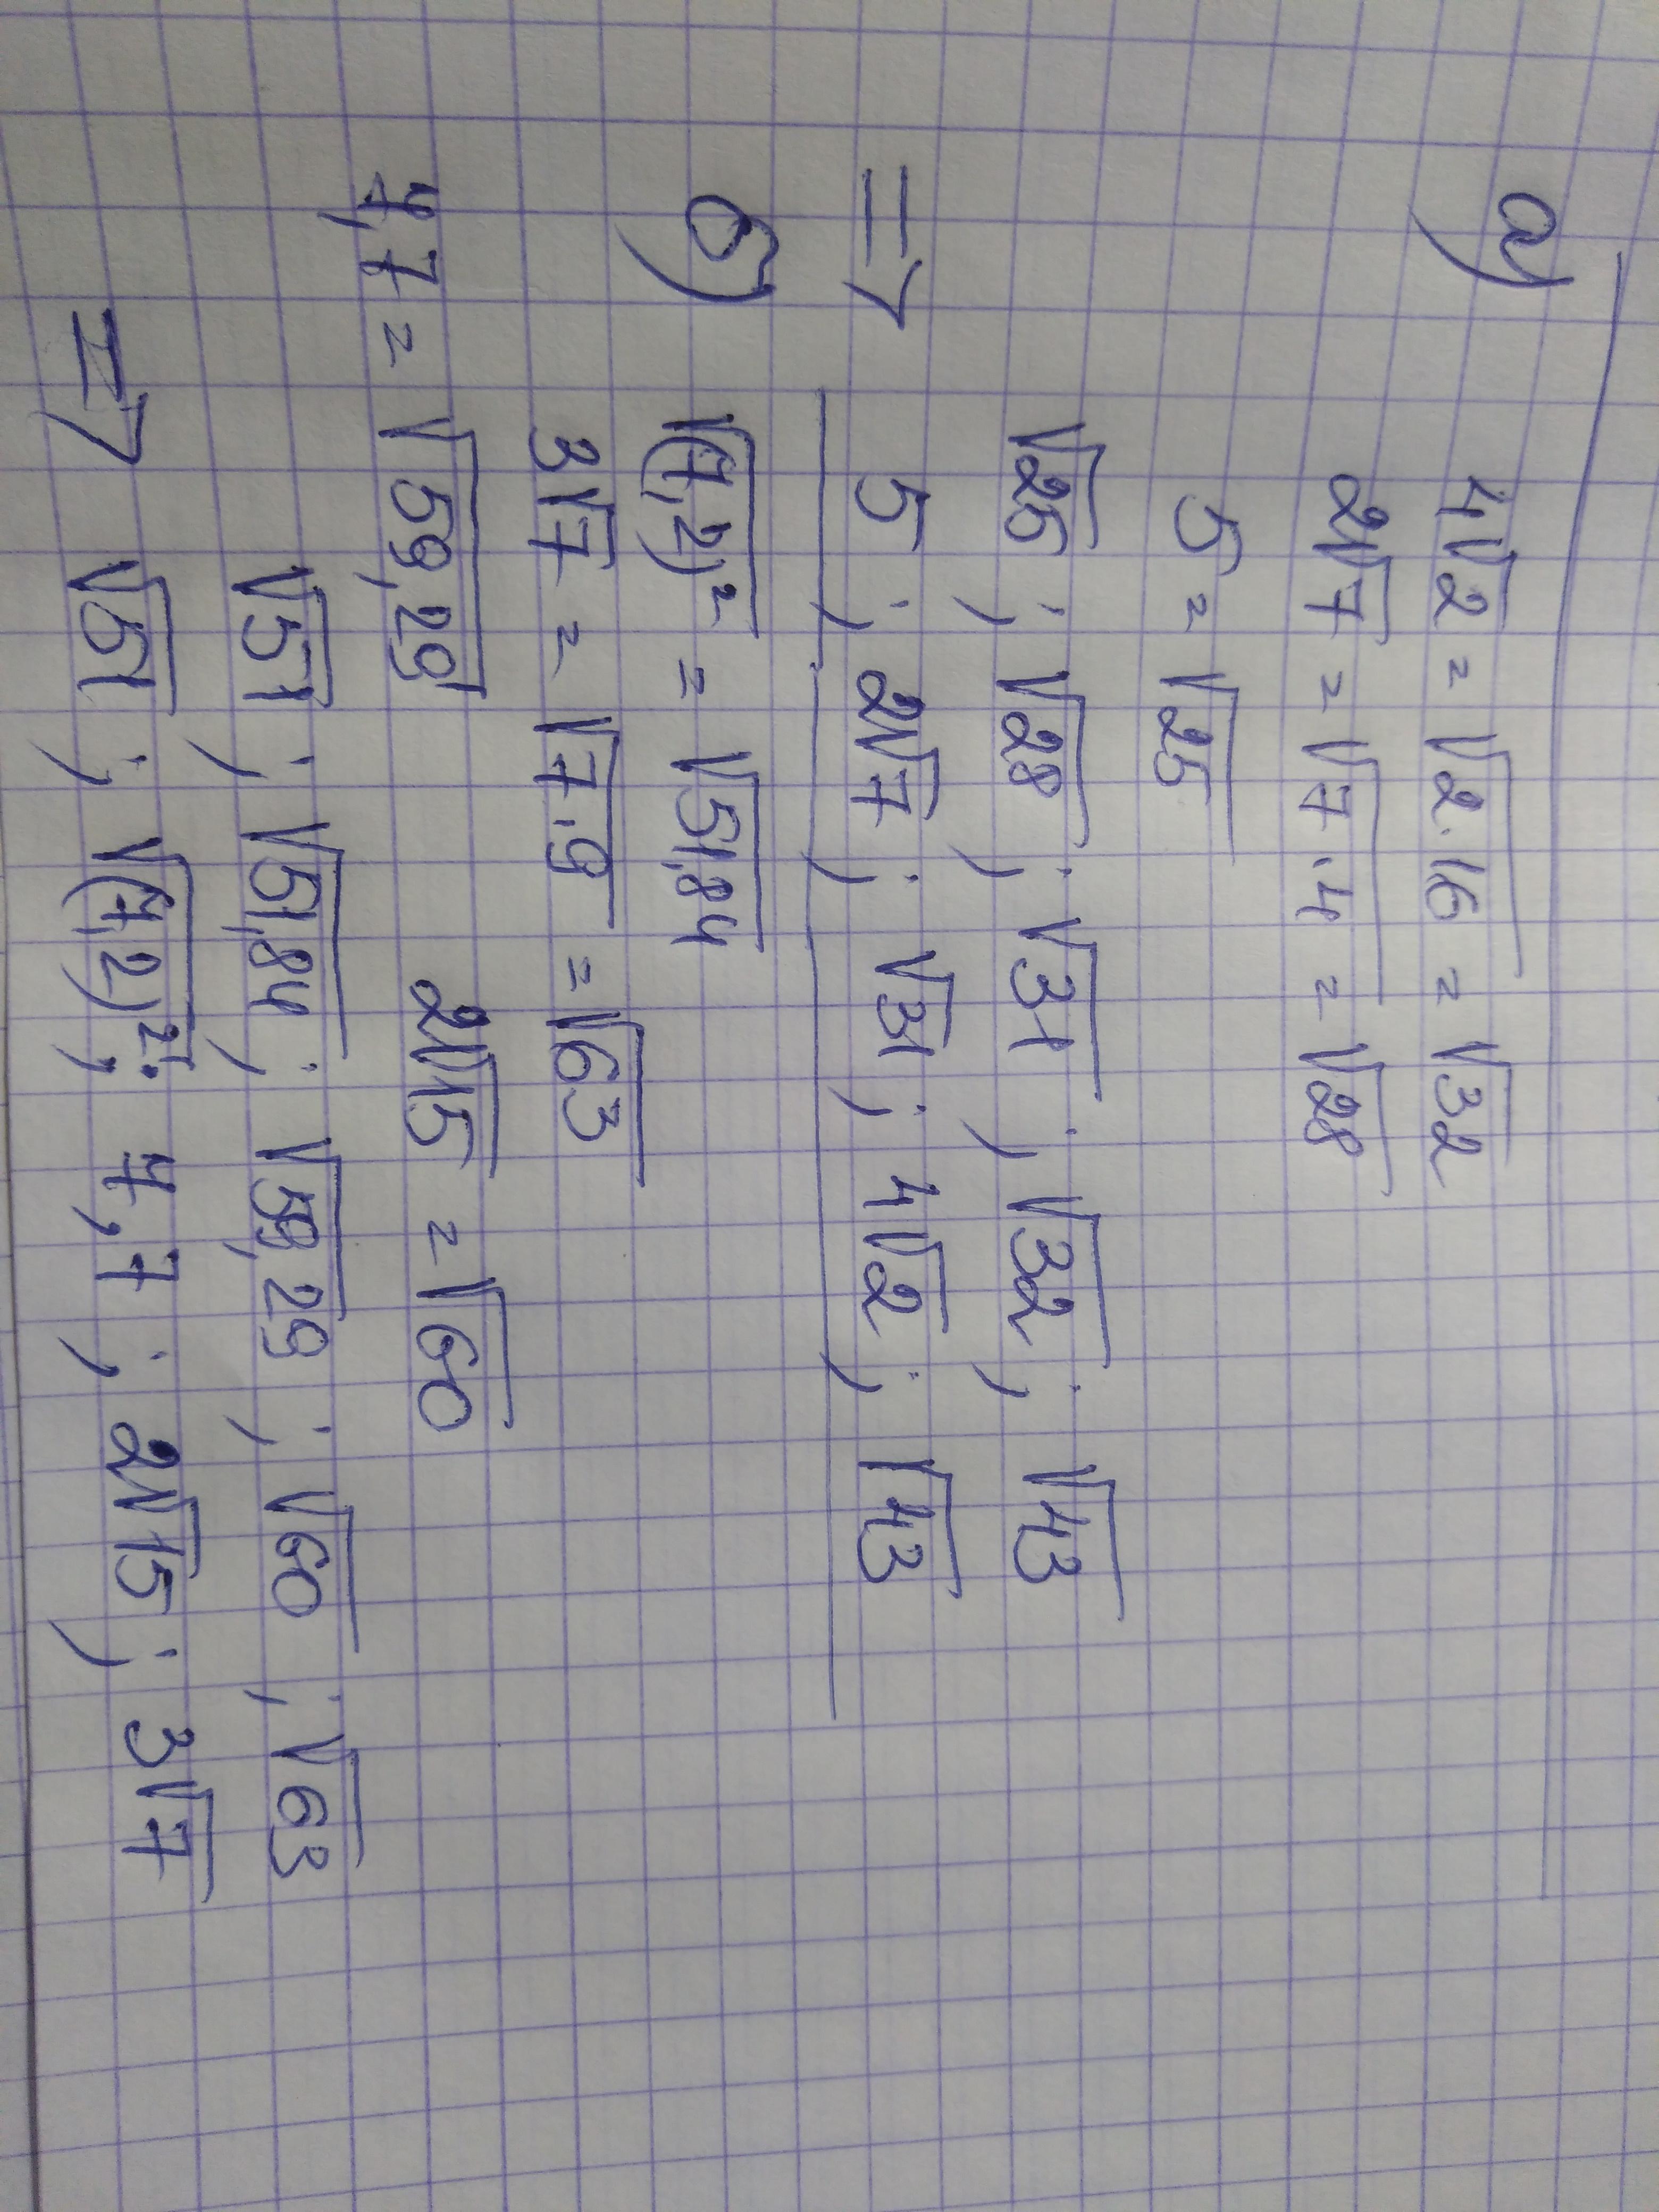 а)
4√2 = √2·16 = √32
2√7 = √7·4 = √28
5 = √25
√25 ; √28 ; √31 ; √32 ; √43
=> 5 ; 2√7 ; √31 ; 4√2 ; √43
б) √(7,2)² = √51,84
3√7 = √7·9 = √63
7,7 = √59,29 2√15 = √60
√51 ; √51,84 ; √59,29 ; √60 ; √63
=> √51 ; √(7,2)² ; 7,7 ; 2√15 ; 3√7